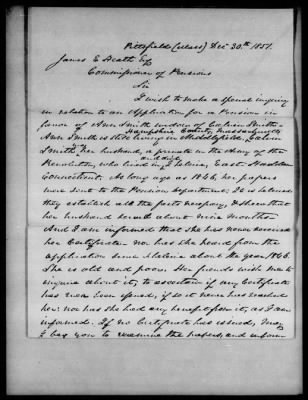 Pittsfield (Mass) Dec 30th 1851.
James E Heath Esq
Commissioner of Pensions
Sir
I wish to make a special inquiry
in relation to an Application for a Pension in
favor of Ann Smith widow of Calvin Smith
Hampshire County, Massachusetts
Ann Smith is still living in Middlefield, Calvin
Smith her husband, a private in the Army of the
and died
Revolution, who lived in East Haddam
Connecticut. As long ago as 1846, her papers
were sent to the Pension Department: It is believed
they establish all the facts necessary, & show that
her husband served about nine months
And I am informed that she has never received
her Certificate nor has she heard from the
application since I believe about the year 1846.
She is old and poor. Her friends wish me to
inquire about it, to ascertain if any Certificate
has ever been issued, if so it never has reached
her: nor has she had any benefit from it, as I am
informed. If no Certificate has issued, may
I beg you to examine the papers, and inform